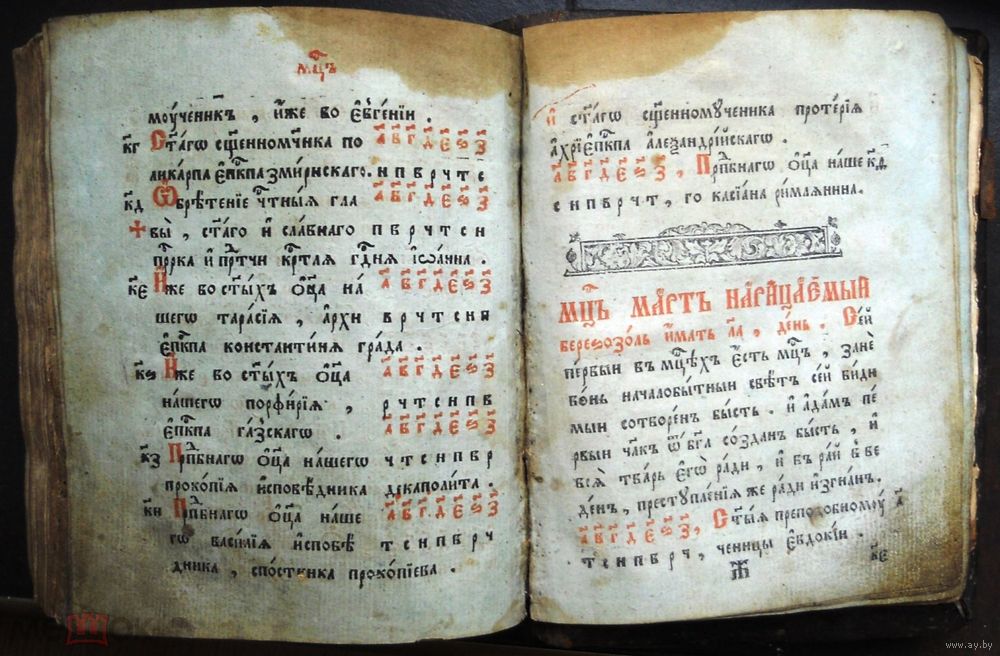 мцъ
моученикъ , и҆́же во є҆ѵге́нїи .
кг Ст҃а́гѡ сщ҃енномч҃ника по а҃ в҃ г҃ д҃ є҃ ѕ҃ з҃
лика́рпа є҆пк҃па змѵ́рнскаго. н п в р ч т с
кд Ѡ҆брѣ́тенїе чⷭ҇тны́ѧ гла а҃ в҃ г҃ д҃ є҃ ѕ҃ з҃
вы̀ , ст҃а́го и҆ сла́внаго п в р ч т с н
прⷪ҇ро́ка и҆ прⷣт҇чи крⷭ҇т҇лѧ гдⷭ҇нѧ і҆ѡа́нна .
ке И҆́же во ст҃ы́хъ ѻ҆ц҃а̀ на́ а҃ в҃ г҃ д҃ є҃ ѕ҃ з҃
шего тара́сїѧ , а҆́рхи в р ч т с н п
є҆пк҃па константи́нѧ гра́да .
кѕ И҆́же во ст҃ы́хъ ѻ҆ц҃а̀ а҃ в҃ г҃ д҃ є҃ ѕ҃ з҃
на́шего порфи́рїѧ , р ч т с н п в
є҆пк҃па га́зскагѡ . а҃ в҃ г҃ д҃ є҃ ѕ҃ з҃
кз Прпⷣбнагѡ ѻ҆ц҃а̀ на́шегѡ ч т с н п в р
проко́пїѧ и҆сповѣ́дника декаполи́та .
кн Прпⷣбнагѡ ѻ҆ц҃а̀ на́ше а҃ в҃ г҃ д҃ є҃ ѕ҃ з҃
гѡ васи́лїѧ и҆сповѣ́ т с н п в р ч
дника , спо́стника проко́пїева .
и҆ ст҃а́гѡ сщ҃енномꙋ́ченика проте́рїѧ
а҆рхїепⷭ҇кпа а҆леѯандрі́йскагѡ .
а҃ в҃ г҃ д҃ є҃ ѕ҃ з҃ , Прпⷣбнагѡ ѻ҆ц҃а̀ на́ше
с н п в р ч т , го касїа́на ри́млѧнина .
МЦ҃Ъ МА́РТЪ НАРИЦА́ЕМЫЙ
березо́золь и҆́мать л҃а , де́нь . Се́й
пе́рвыи въ мцⷭ҇ѣхъ є҆́сть мцⷭ҇ъ , занѐ
во́нь началобы́тныи свѣ́тъ се́й ви́ди
мыи сотворе́нъ бы́сть . и҆ а҆да́мъ пе́
рвыи чл҃къ ѿ бг҃а со́зданъ бы́сть , и҆
всѧ̀ тва́рь є҆гѡ̀ ра́ди , и҆ въ ра́й вве
де́нъ , преступле́нїѧ же ра́ди и҆згна́нъ .
а҃ в҃ г҃ д҃ є҃ ѕ҃ з҃ , Ст҃ы́ѧ преподобномоу́ а҃
т с н п в р ч , ченицы є҆ѵдокі́и .
ке
www.ay.by